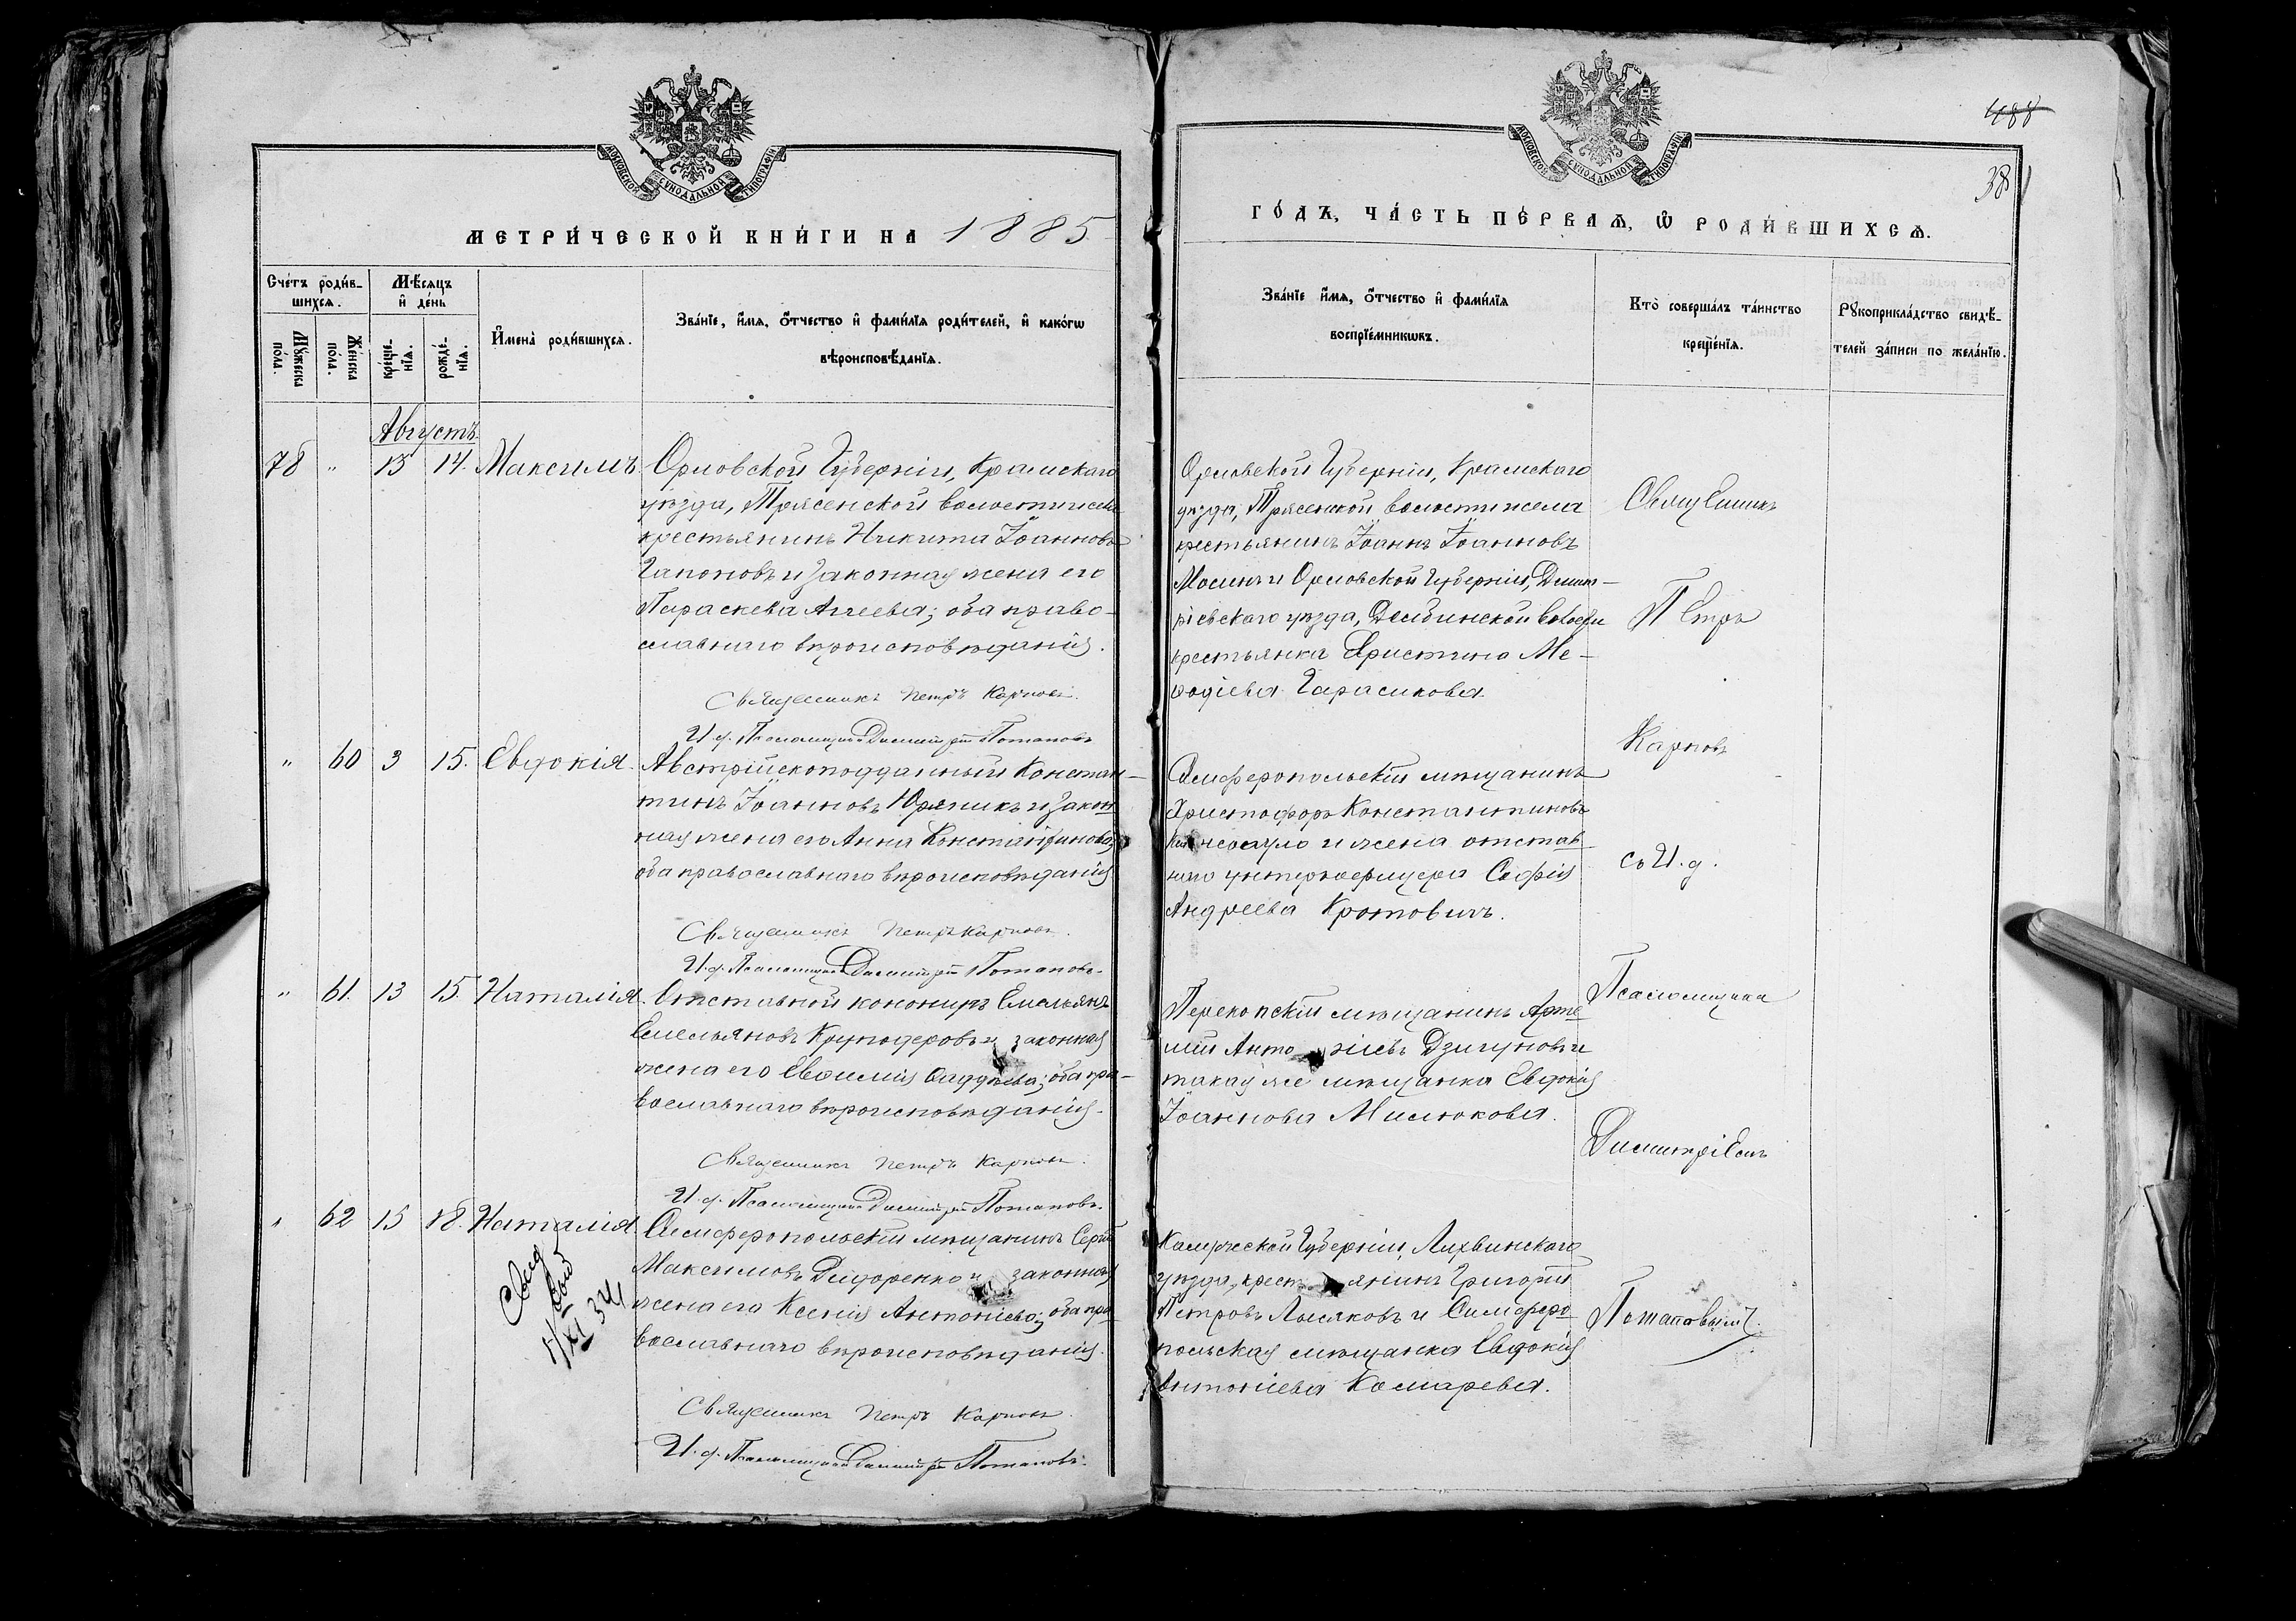 МОСКОВСКОЙ СѴНОДАЛЬНОЙ ТИПОГРАФІИ
МЕТРИ́ЧЕСКОЙ КНИ́ГИ НА 1885
Сче́тъ роди́в-
шихсѧ.
Мѣ́сѧцъ
и҆ де́нь
Мꙋ́жеска
по́ла.
Же́нска
по́ла.
креще́-
нїѧ.
рожде́-
нїѧ.
И҆мена̀ роди́вшихсѧ.
Зва́нїе, и҆́мѧ, ѻ҆́тчество и҆ фами́лїѧ роди́телей, и҆ како́гѡ
вѣроисповѣ́данїѧ.
Августъ
78 " 13 14. Максимъ
Орловской Губерніи, Крамскаго
уѣзда, Трясенской волости села
крестьянинъ Никита Іоанновъ
Гапоновъ и законная жена его
Параскева Аггеева; оба право-
славнаго вѣроисповѣданія.
Священникъ Петръ Карповъ.
И. д. Псаломщика Димитрій Потаповъ
" 60 3 15. Евдокія.
Австрійскоподданный Констан-
тинъ Іоанновъ Юряникъ и закон
ная жена его Анна Константинова;
оба православнаго вѣроисповѣданія
Священникъ Петръ Карповъ.
И. д. Псаломщика Димитрій Потаповъ.
" 61. 13 15. Наталія.
Отставной канониръ Емельянъ
Емельяновъ и законная
жена его Евѳимія Ѳаддеева; оба пра-
вославнаго вѣроисповѣданія.
Священникъ Петръ Карповъ.
И. д. Псаломщика Димитрій Потаповъ.
" 62 15 18. Наталія.
Симферопольскій мѣщанинъ Сергій
Максимовъ Дидоренко и законная
жена его Ксенія Антоніева; оба пра
вославнаго вѣроисповѣданія.
Священникъ Петръ Карповъ
И. д. Псаломщика Димитрій Потаповъ.
МОСКОВСКОЙ СѴНОДАЛЬНОЙ ТИПОГРАФІИ
488
381
ГО́ДЪ, ЧА́СТЬ ПЕ́РВАѦ, Ѡ҆ РОДИ́ВШИХСѦ.
Зва́нїе и҆́мѧ, ѻ҆́тчество и҆ фами́лїѧ
воспрїе́мникѡвъ.
Кто̀ соверша́лъ та́инство
креще́нїѧ.
Рꙋкоприкла́дство свидѣ́-
телей за́писи по жела́нїю.
Орловской Губерніи, Крамскаго
уѣзда, Трясенской волости села
крестьянинъ Іоаннъ Іоанновъ
Мосинъ и Орловской Губерніи, Димит-
ріевскаго уѣзда, волости
крестьянка Христина Ме-
ѳодіева Гарасикова.
Симферопольскій мѣщанинъ
Христофоръ Константиновъ
и жена отстав-
наго унтерофицера Софія
Андреева Кротовичъ.
Перекопскій мѣщанинъ Арте
мій Антоніевъ Дзигуновъ и
такая же мѣщанка Евдокія
Іоаннова Милюкова.
Калужской Губерніи, Лихвинскаго
уѣзда, крестьянинъ Григорій
Петровъ Лысяковъ и Симферо
польская мѣщанка Евдокія
Антоніева Комарева.
Священникъ
Петръ
Карповъ
съ И. д.
Псаломщика
Димитріемъ
Потаповымъ.